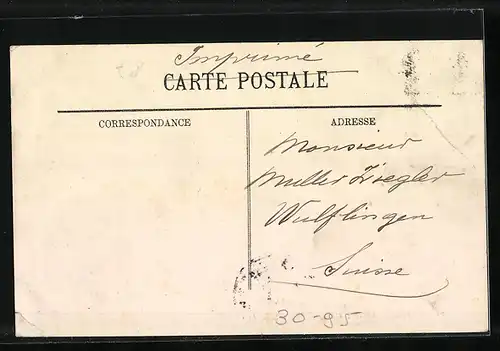 Imprimé
CARTE POSTALE
CORRESPONDANCE
ADRESSE
Monsieur
Muller Ziegler
Wulflingen
Suisse
30-95